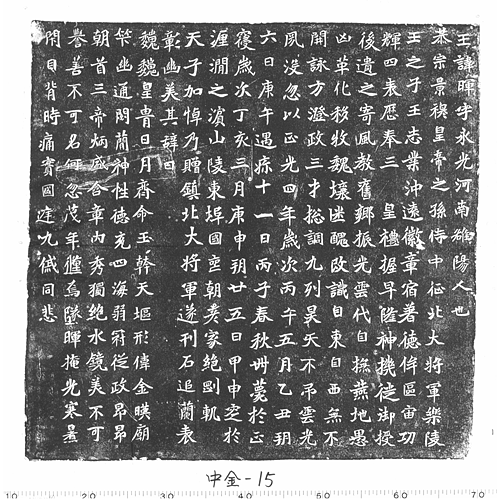 王諱暉字永光河南雒陽人也
恭宗景穆皇帝之孫侍中征北大將軍樂陵
王之子王志業沖遠徽章宿著德侔區宙功
輝四表歷奉三皇禮握早隆神機徒御授
後遺之寄風教舊鄉振光雲代自撫燕地愚
凶革化移牧魏壤迷醜改識自東自西無不
開詠方澄政三才揔調九列昊天不弔雲光
夙没忽以正光四年歲次丙午五月乙丑朔
六日庚午遘疾十一日丙子春秋卌薨於正
寢歲次丁亥三月庚申朔廿五日甲申窆於
瀍澗之濱山陵東埠國喪朝彦家絶剛軌
天子加悼乃贈鎮北大將軍遂刊石追蘭表
彰幽美其辭曰
巍巍皇胄日月齊命玉幹天挺形偉金暎廟
幽通閒蘭神性德充四海弱冠從政昂昂
朝首三帝炳盛含章内秀獨絶水鏡美不可
譽善不可名何忽茂年儵焉墜暉掩光寒暑
閇目背時痛貫國逵九儀同悲
中金-15
10 20 30 40 50 60 70